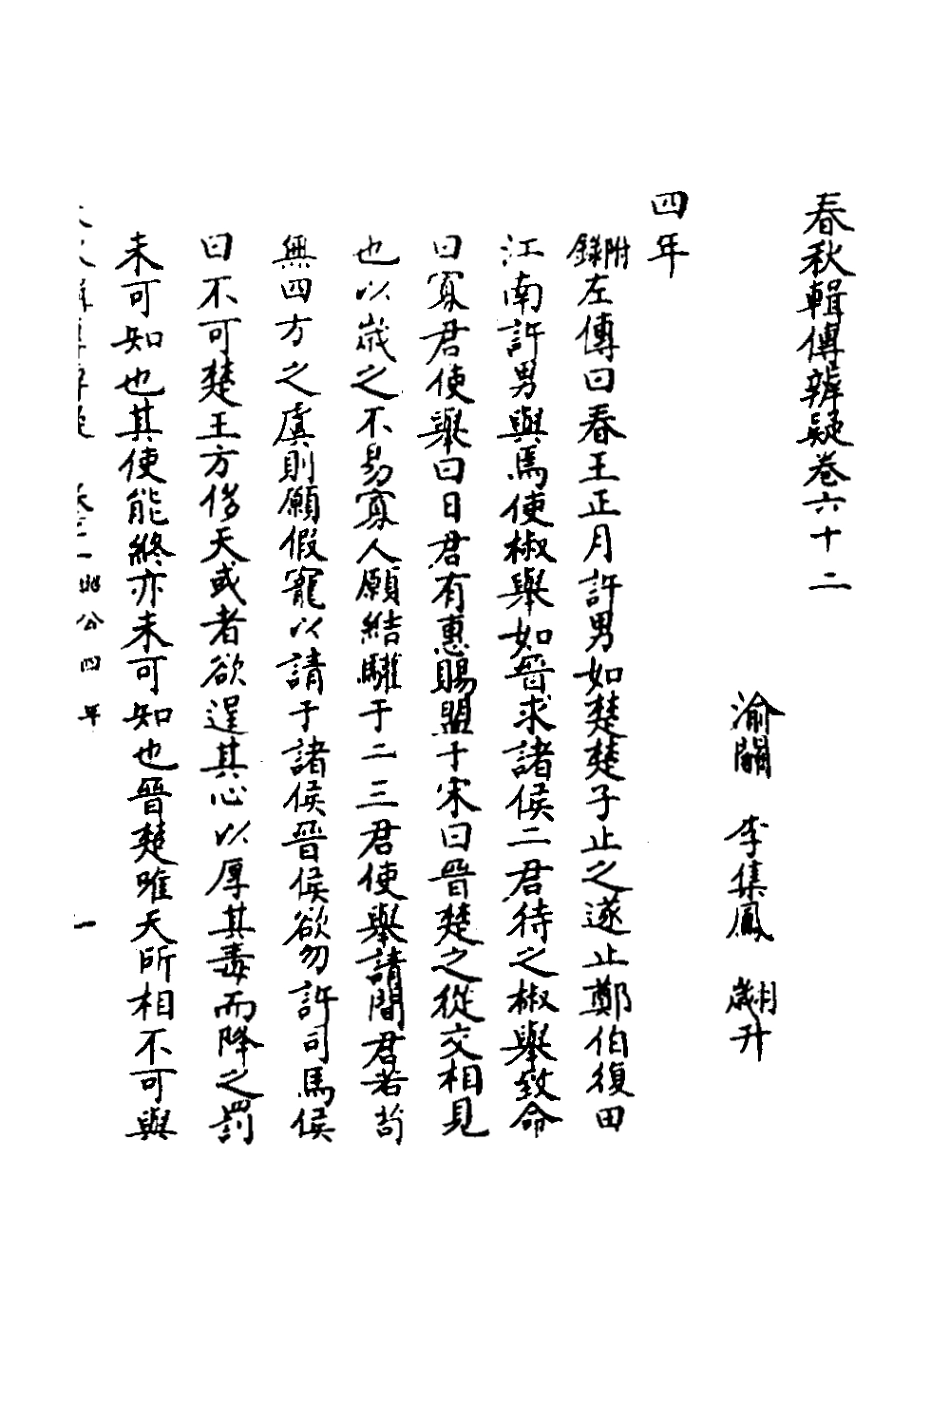 春秋輯傳辨疑卷六十二
渝關 李集鳳 翽升
四年
附錄左傳曰春王正月許男如楚楚子止之遂止鄭伯復田
江南許男與焉使椒舉如晉求諸侯二君待之椒舉致命
曰寡君使舉曰日君有惠賜盟于宋曰晉楚之從交相見
也以歲之不易寡人願結驩于二三君使舉請間君若苟
無四方之虞則願假寵以請于諸侯晉侯欲勿許司馬侯
曰不可楚王方侈天或者欲逞其心以厚其毒而降之罰
未可知也其使能終亦未可知也晉楚唯天所相不可與
公四年
一